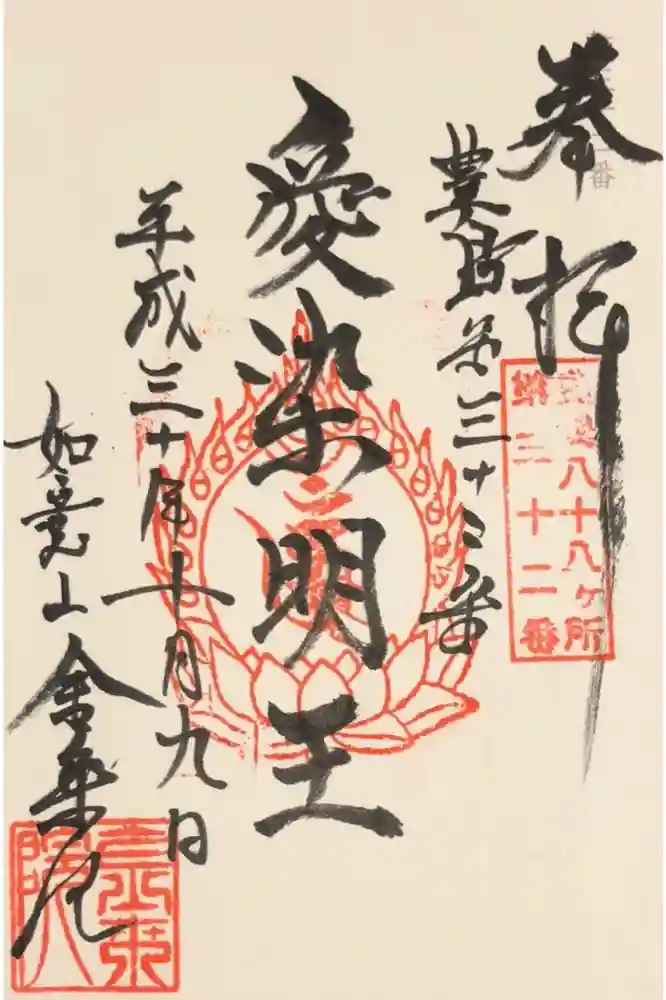 奉拝
豊島第三十二番
愛染明王
平成三十年十月九日
如意山金乗院
豊島八十八ヶ所
第三十二番